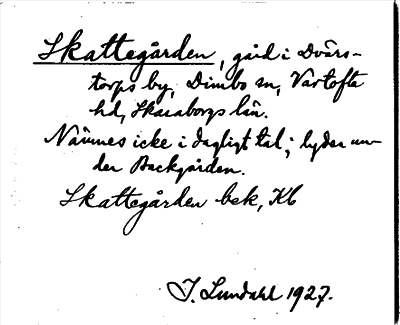 Skattegården, gård i Dvärs-
torps by, Dimbo sn, Vartofta
hd, Skaraborgs län.
Nämnes icke i dagligt tal; lyder un-
der Backgården.
Skattegården bek, Kb
I. Lundahl 1927.